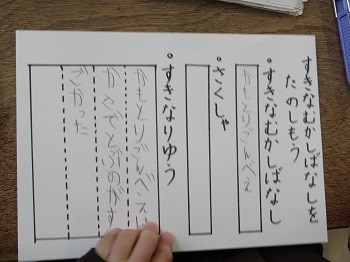 すきなむかしばなしを
たのしもう
・すきなむかしばなし
かもとりごんべえ
・さくしゃ
・すきなりゆう
かもとりごんべえは
からでとぶのがす
ごかった